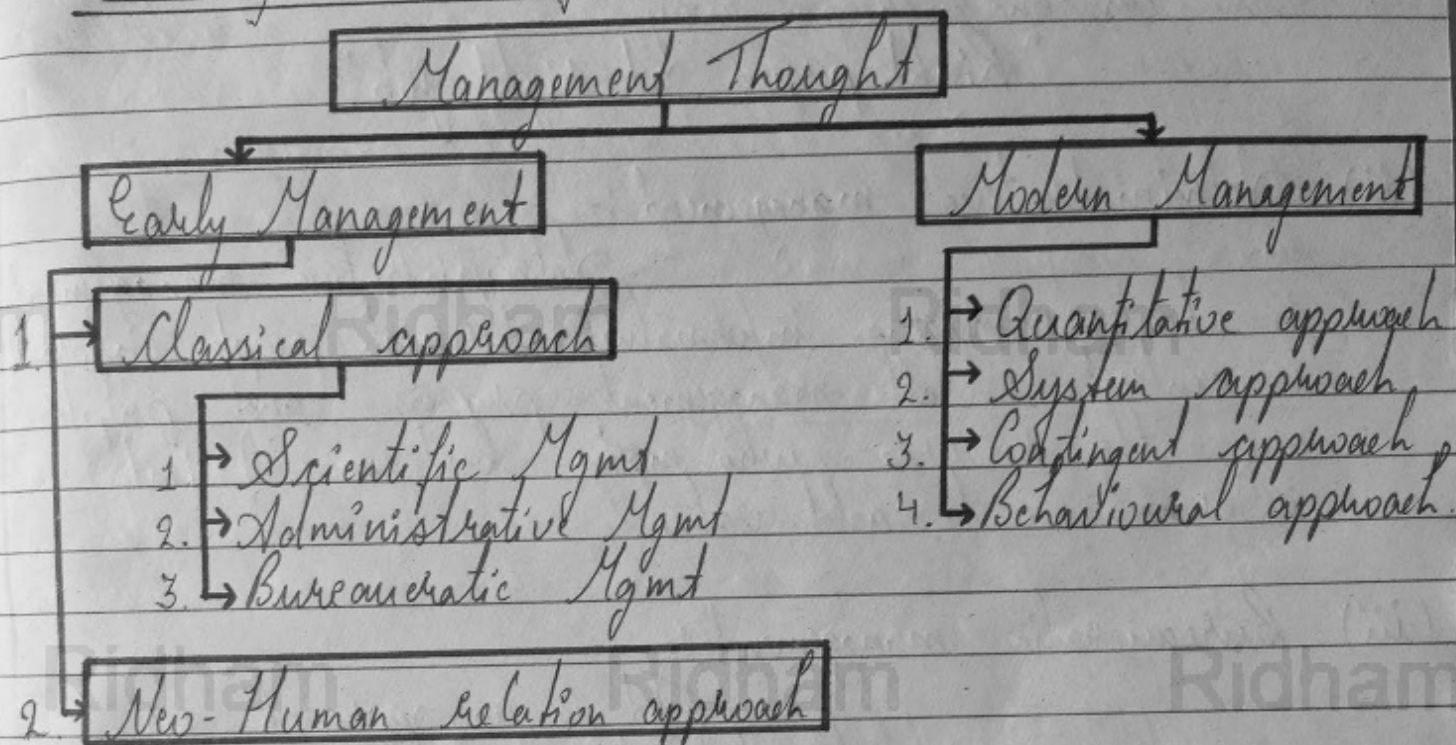 Management Thought
Early Management
Modern Management
1. Classical approach
1 Scientific Mgmt
2. Administrative Mgmt
3. Bureaucratic Mgmt
2. Neo-Human relation approach
1. Quantitative approach
2. System approach
3. Contingent approach
4. Behavioural approach
Ridham
Ridham
Ridham
Ridham
Ridham